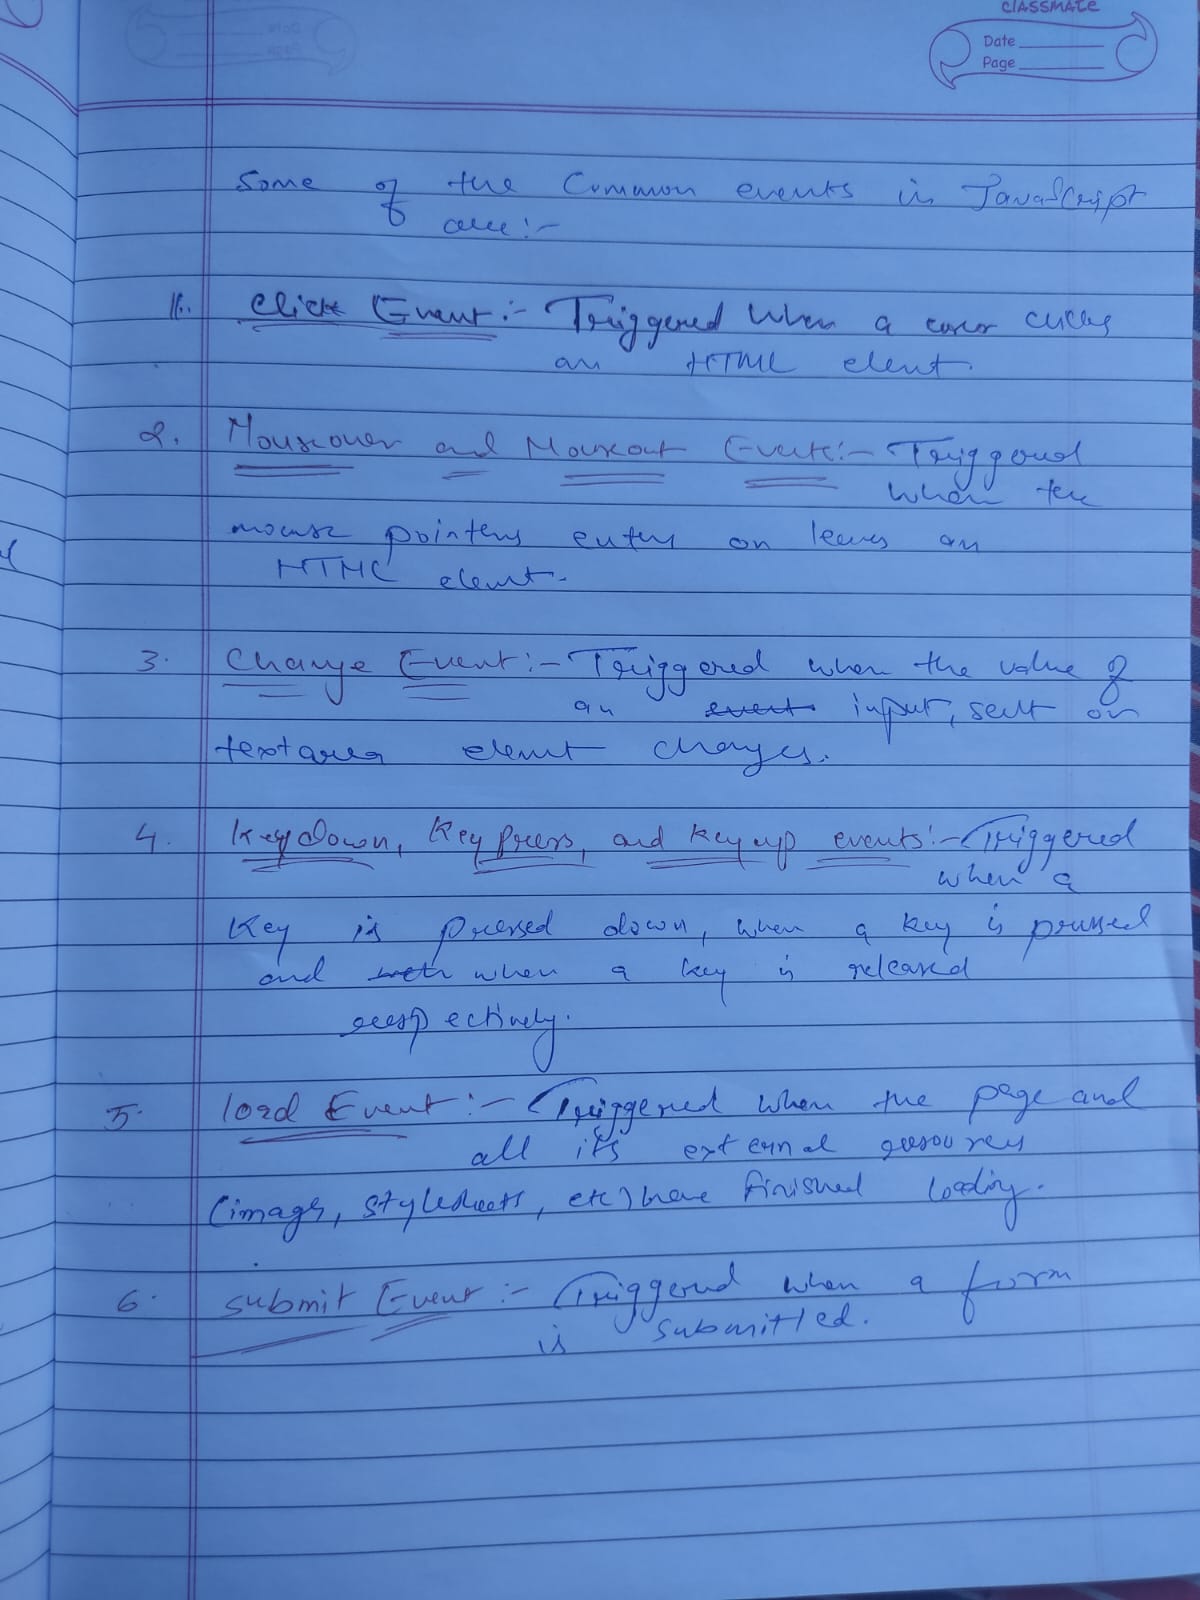 CLASSMATE
Date
Page
Some of the Common events in JavaScript
are:-
1. Click Event:- Triggered when a clicks
an HTML elent.
2. Mouseover and Mouseout Event:- Triggered
when the
mouse pointers enters or leaves an
HTML elemt.
3. Change Event:- Triggered when the value of
an event input, selt or
textarea elemt changes.
4. Keydown, KeyPress, and Keyup events:- Triggered
when a
Key is pressed down, when a key is pressed
and when a key is released
respectively.
5. load Event:- Triggered when the page and
all its external resources
(images, stylesheets, etc) have finished loading.
6. submit Event:- Triggered when a form
is submitted.